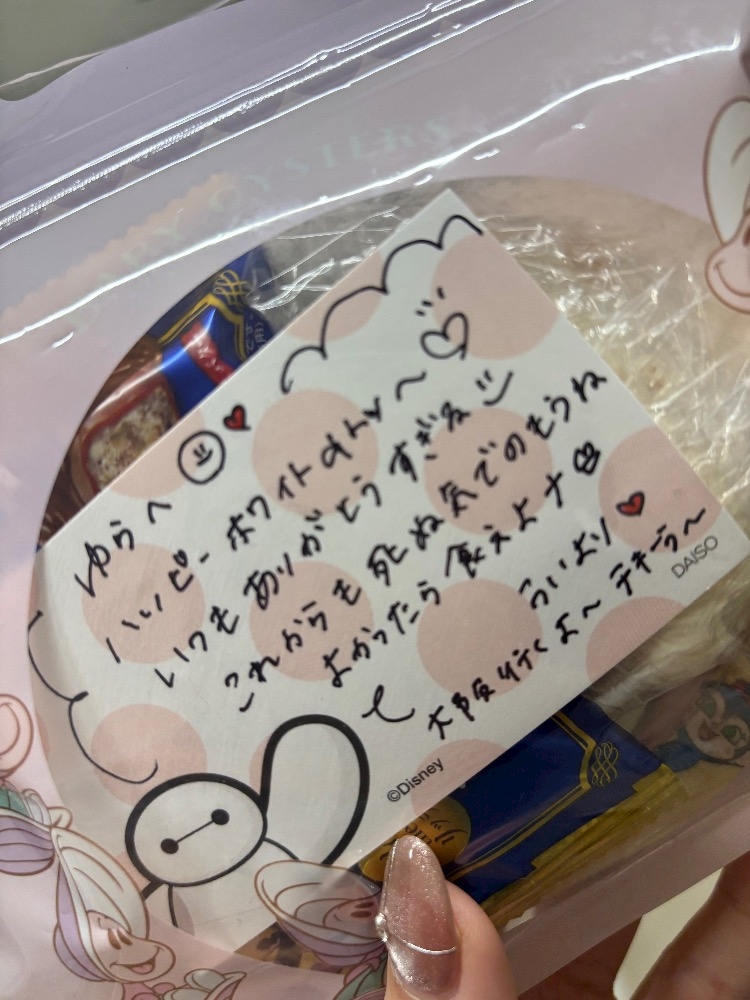 ゆうへ
ハッピーホワイトdayトゥ〜
いつもありがとうすぎる
これからも死ぬ気でのもうね
よかったら食えよナ
ういより
大阪行くよ〜テキーラ〜
DAISO
©Disney
BABY OYSTERS